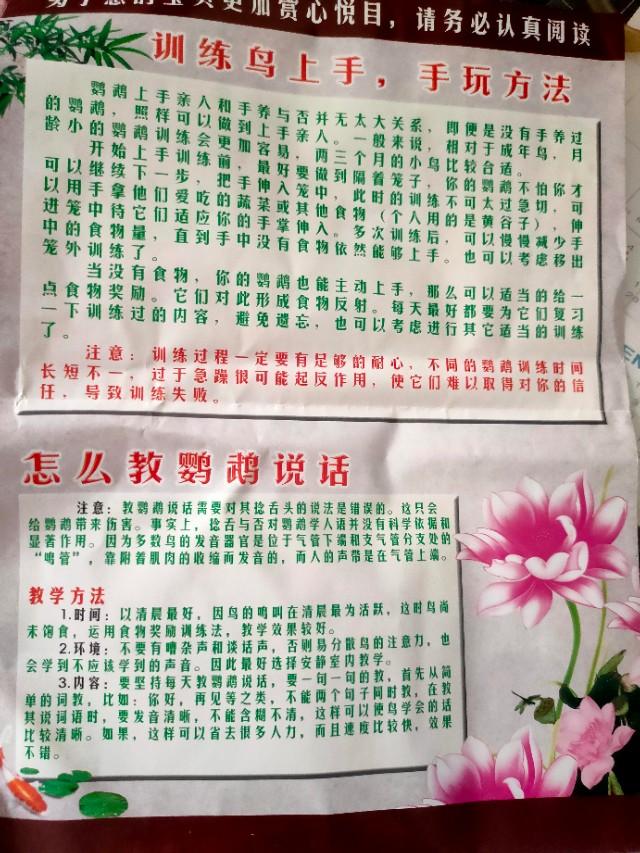 的宝贝更加赏心悦目，请务必认真阅读
训练鸟上手，手玩方法
鹦鹉上手亲人和手养与否并无太大关系，即便是没有手养过
的鹦鹉，照样可以做到上手亲人。一般来说，相对于成年鸟，月
龄小的鹦鹉训练会更加容易，两三个月的小鸟比较合适。
开始上手训练前，最好要做到隔着笼子，你的鹦鹉不怕你才
可以继续下一步，把手伸入笼中，此时的训练不可太过急切，可
以用手拿他们爱吃的蔬菜或其他食物（个人用的是黄谷子），伸
进笼中待它们适应你的手掌伸入。多次训练后，可以慢慢减少手
中的食物量，直到手中没有食物依然能够上手。也可以考虑移出
笼外训练了。
当没有食物，你的鹦鹉也能主动上手，那么可以适当的给一
点食物奖励。它们对此形成食物反射。每天最好都要为它们复习
一下训练过的内容，避免遗忘，也可以考虑进行其它适当的训练
了。
注意：训练过程一定要有足够的耐心，不同的鹦鹉训练时间
长短不一，过于急躁很可能起反作用，使它们难以取得对你的信
任，导致训练失败。
怎么教鹦鹉说话
注意：教鹦鹉说话需要对其捻舌头的说法是错误的。这只会
给鹦鹉带来伤害。事实上，捻舌与否对鹦鹉学人语并没有科学依据和
显著作用。因为多数鸟的发音器官是位于气管下端和支气管分支处的
“鸣管”，靠附着肌肉的收缩而发音的，而人的声带是在气管上端。
教学方法
1.时间：以清晨最好，因鸟的鸣叫在清晨最为活跃，这时鸟尚
未饱食，运用食物奖励训练法，教学效果较好。
2.环境：不要有嘈杂声和谈话声，否则易分散鸟的注意力，也
会学到不应该学到的声音。因此最好选择安静室内教学。
3.内容：要坚持每天教鹦鹉说话，要一句一句的教，首先从简
单的词教，比如：你好，再见等之类，不能两个句子同时教，在教
其说词语时，要发音清晰，不能含糊不清，这样可以使鸟学会的话
比较清晰。如果，这样可以省去很多人力，而且速度比较快，效果
不错。